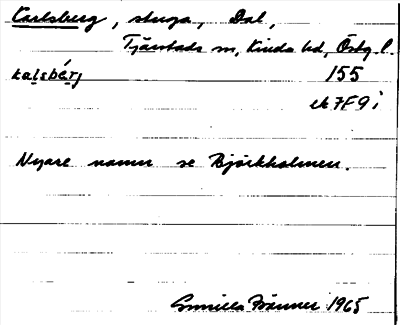 Carlsberg, stuga, Dal,
Tjärstads sn, Kinda hd, Östg. l.
kalsbérj 155
ek 7F9i
Nyare namn se Björkholmen.
Gunilla Fränner 1965